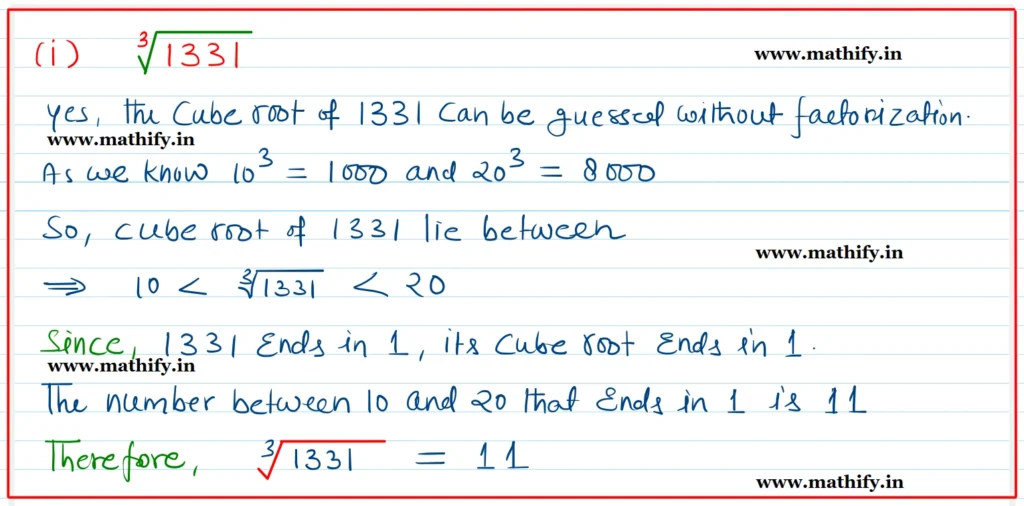 (i) ∛1331
www.mathify.in
Yes, the Cube root of 1331 Can be guessed without factorization.
www.mathify.in
As we know 10³ = 1000 and 20³ = 8000
So, cube root of 1331 lie between
www.mathify.in
⇒ 10 < ∛1331 < 20
Since, 1331 Ends in 1, its Cube root Ends in 1.
www.mathify.in
The number between 10 and 20 that Ends in 1 is 11
Therefore, ∛1331 = 11
www.mathify.in